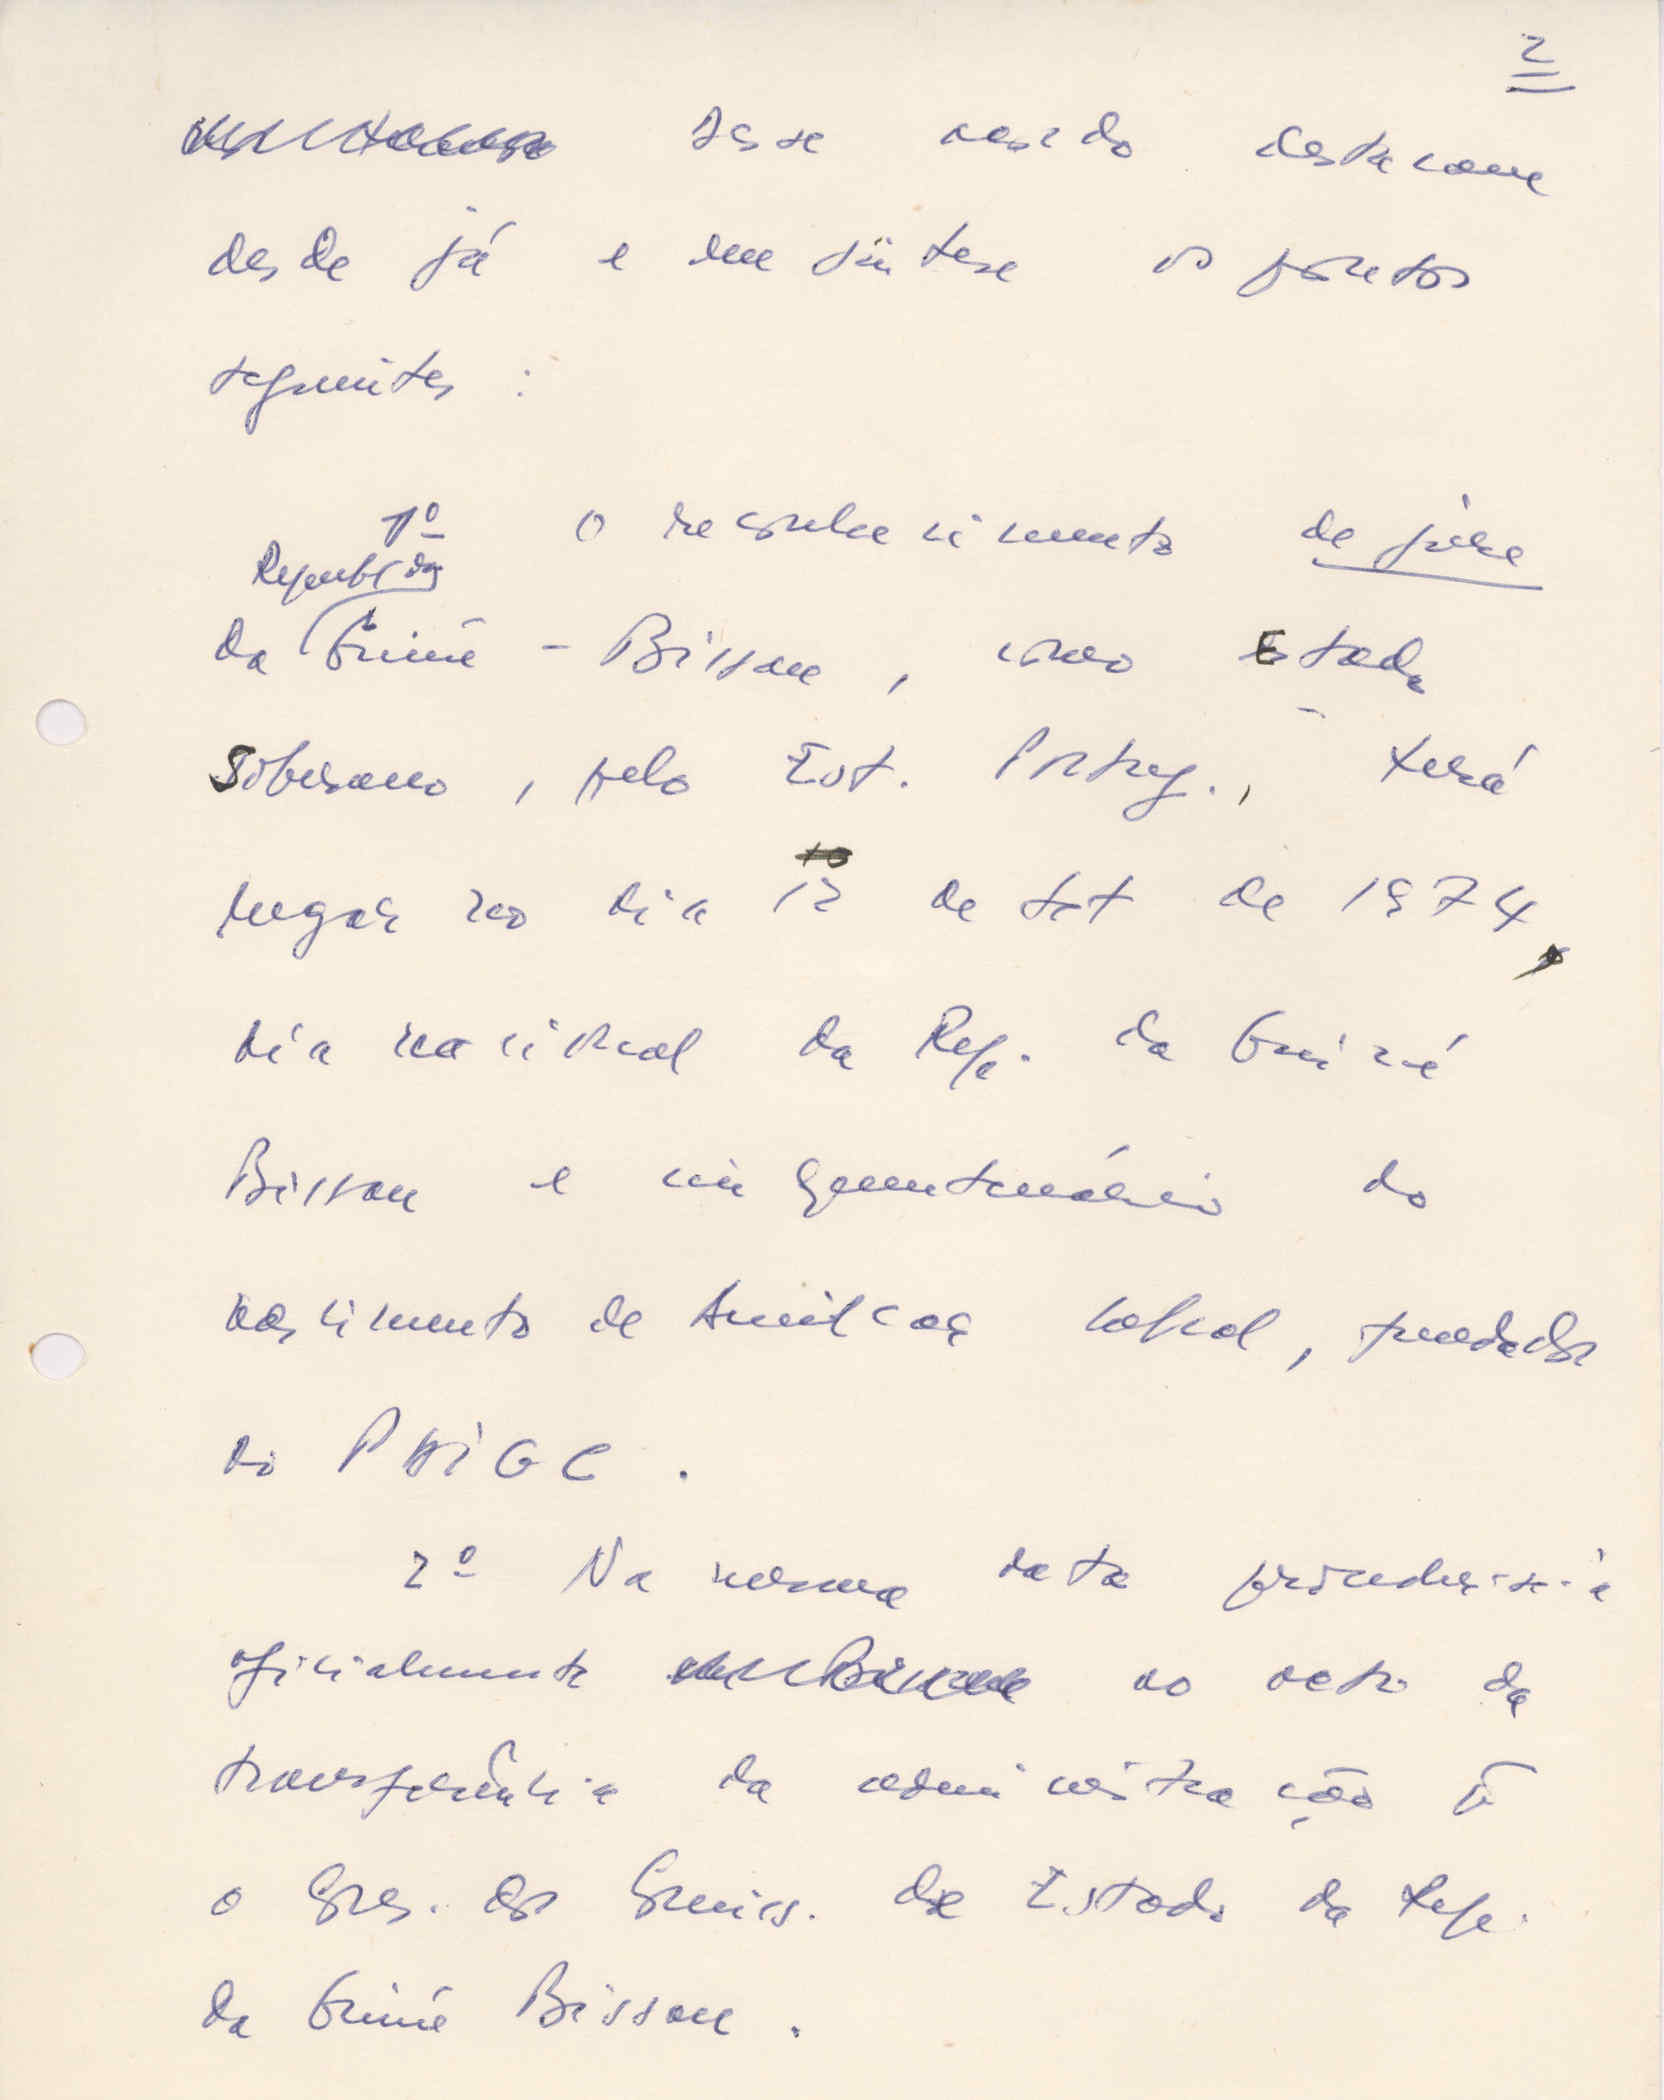 2
desse acordo destacam
desde já e em síntese os pontos
seguintes :
1º O reconhecimento de jure
Republ da
da Guiné - Bissau, como Estado
Soberano, pelo Est. Portug., terá
lugar no dia 12 de set de 1974,
dia nacional da Rep. da Guiné
Bissau e cinquentenário do
nascimento de Amílcar Cabral, fundador
do PAIGC.
2º Na mesma data proceder-se-á
oficialmente ao acto da
transferência da administração p
o Com. de Estado da Rep.
da Guiné Bissau.